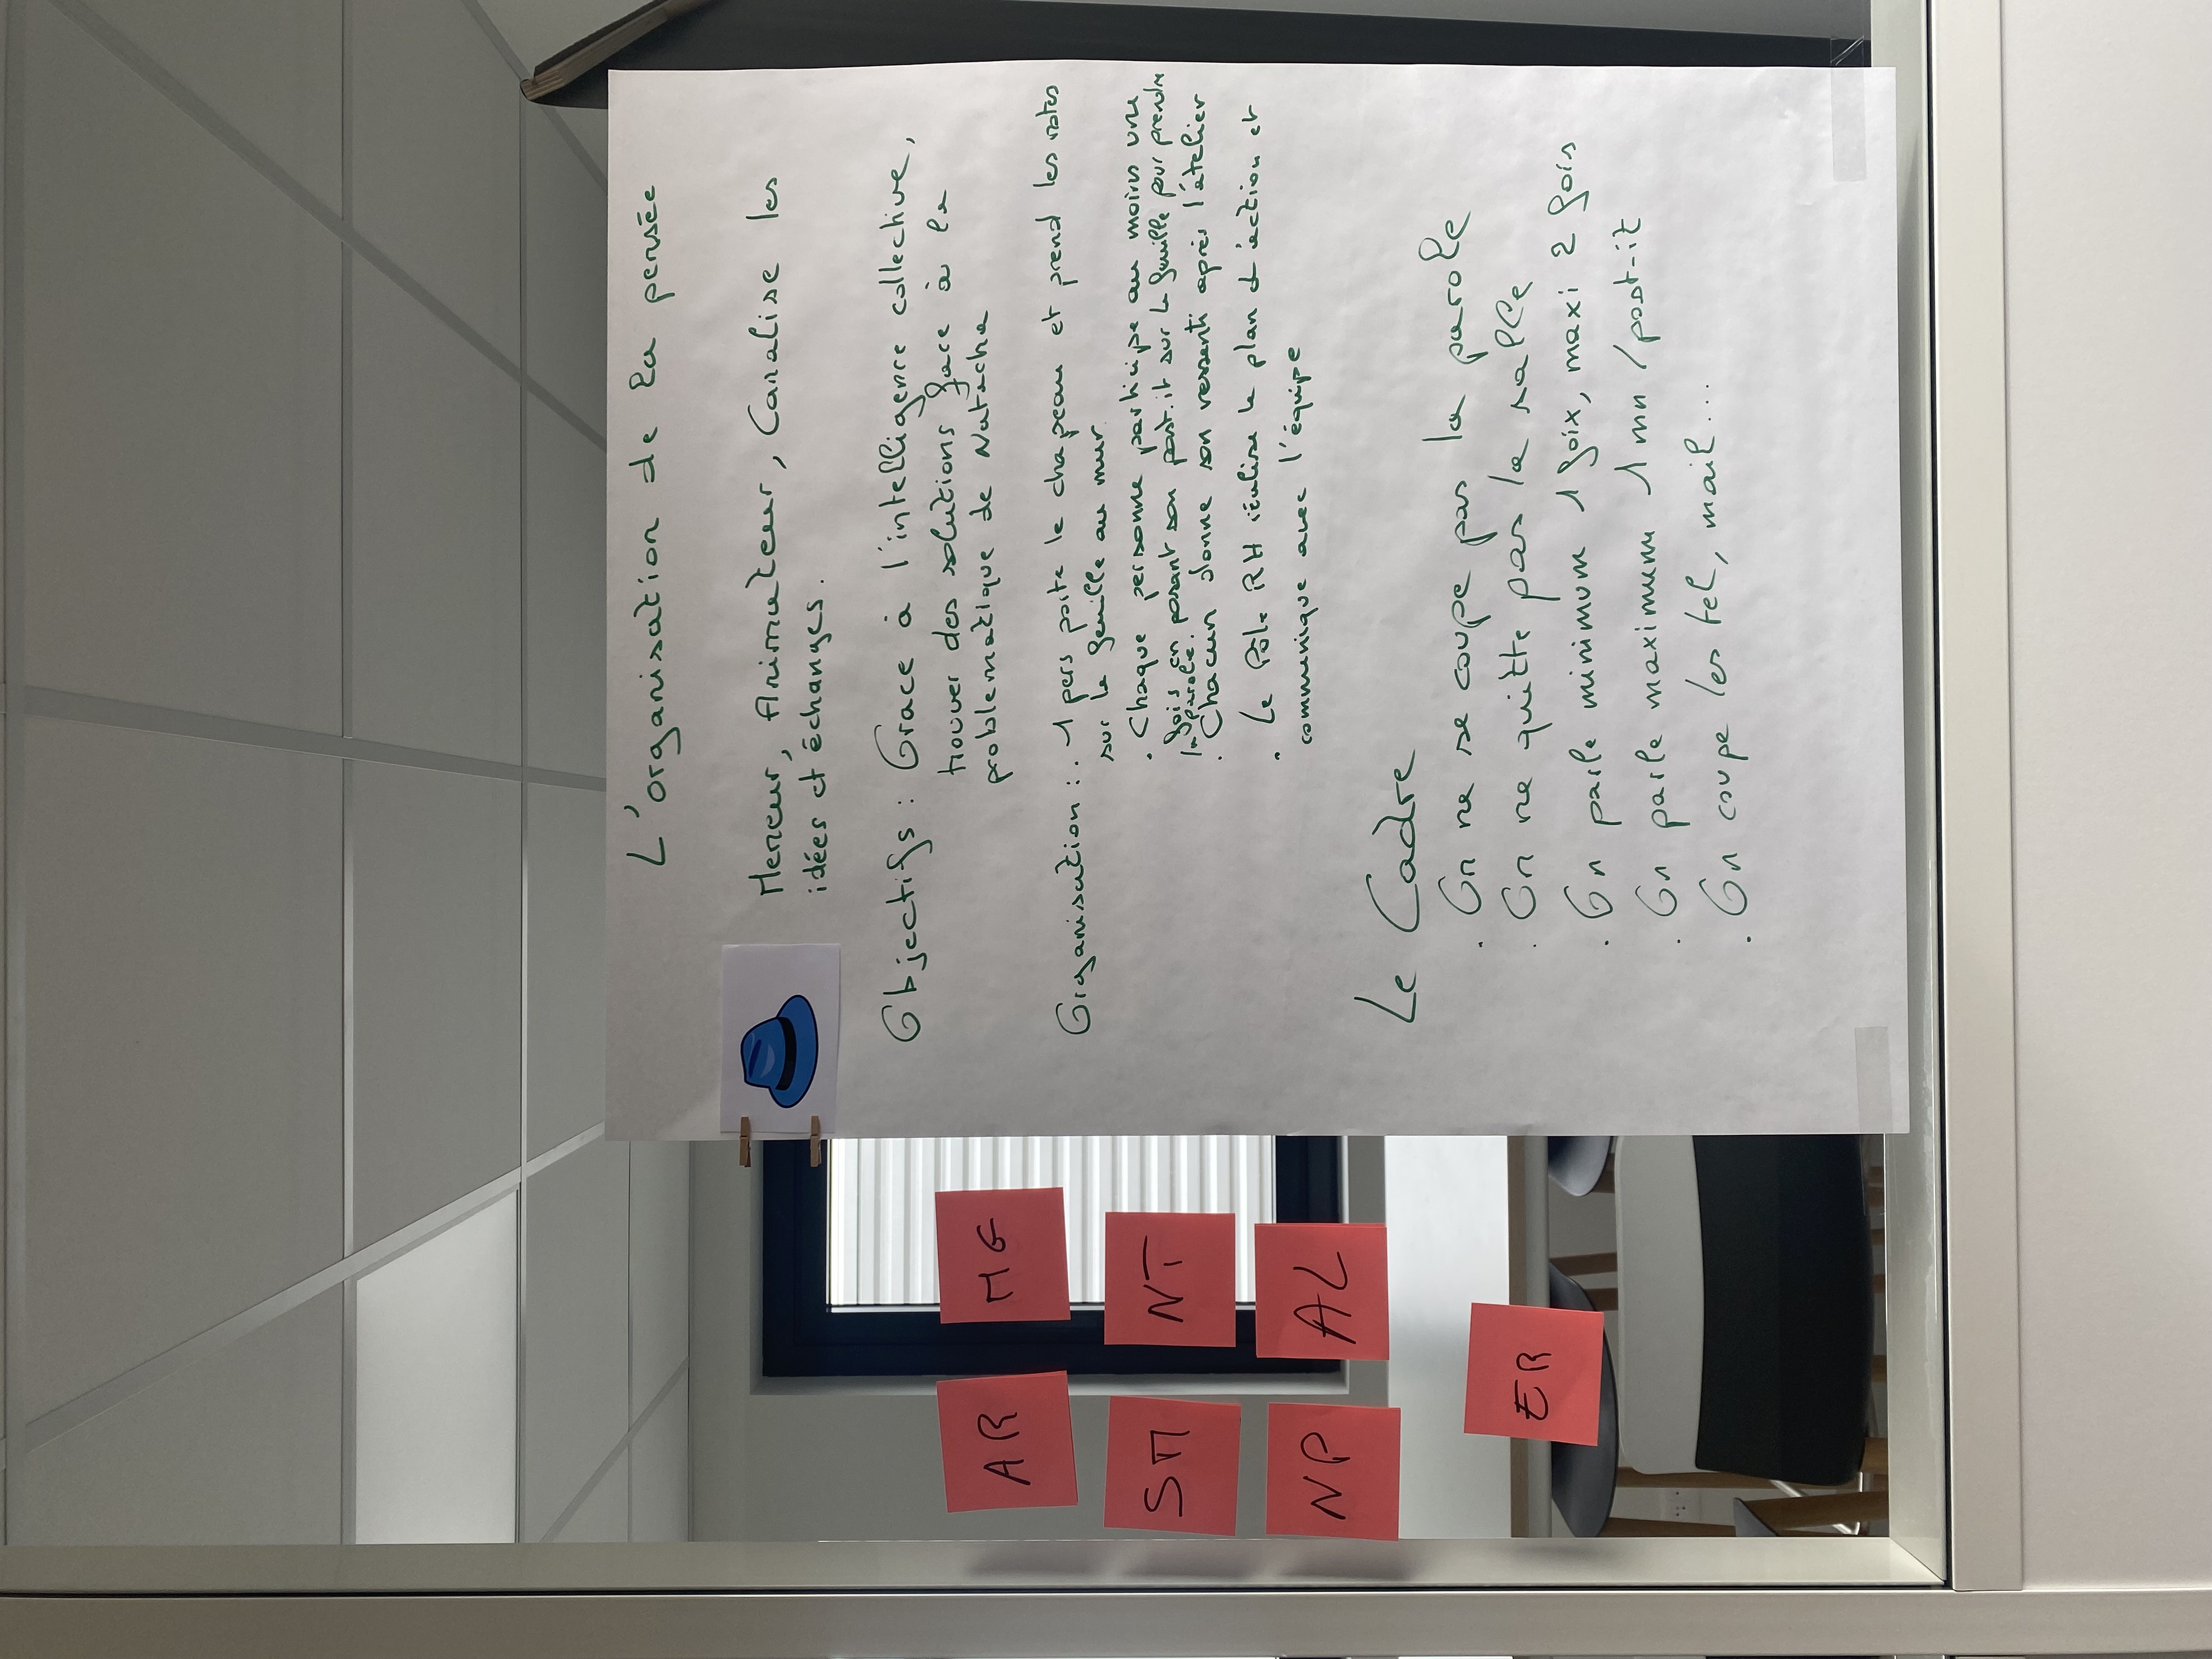 L'organisation de la pensée
Meneur, Animateur, Canalise les
idées et échanges.
Objectifs : Grace à l'intelligence collective,
trouver des solutions face à la
problematique de Natacha
Organisation : . 1 pers porte le chapeau et prend les notes
sur la feuille au mur
. Chaque personne participe au moins une
fois en posant son post-it sur la feuille pour prendre
la parole.
. Chacun donne son ressenti après l'atelier
. Le Pôle RH réalise le plan d'action et
communique avec l'équipe
Le Cadre
. On ne se coupe pas la parole
. On ne quitte pas la salle
. On parle minimum 1 foix, maxi 2 fois
. On parle maximum 1 mn / post-it
. On coupe les tel, mail...
AR
MG
SM
NT
NP
AL
ER